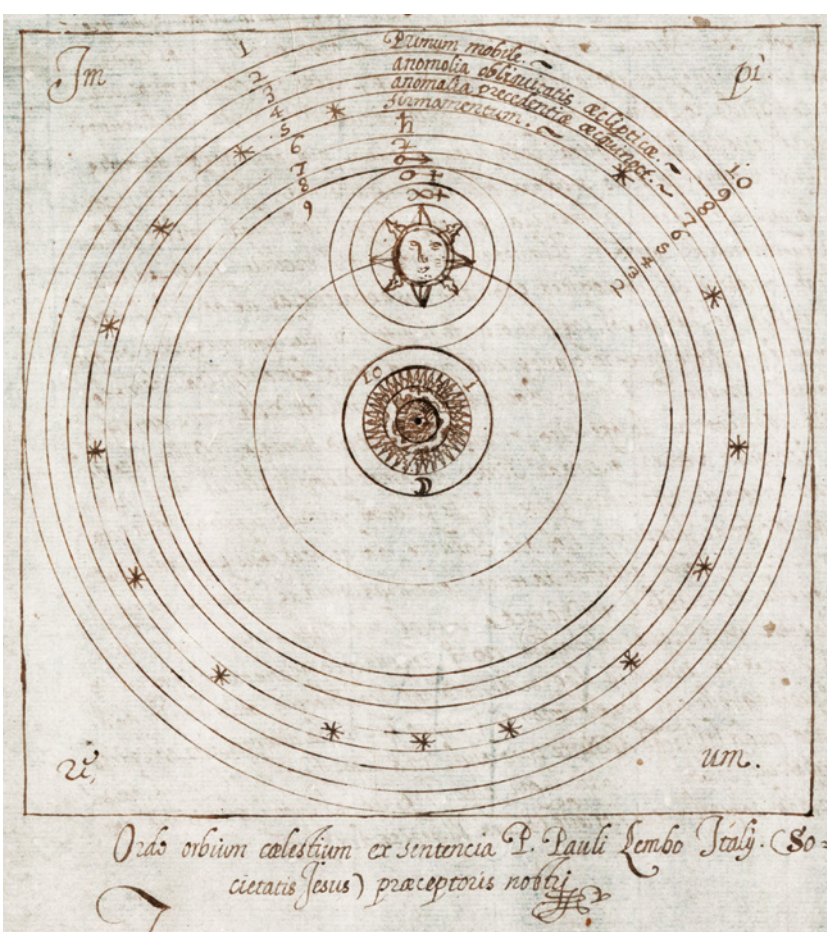 Im
pi
1
Primum mobile.
2
anomolia obliquitatis æclipticæ.
3
anomalia precedentiæ æquinoct.
4
firmamentum.
5
♄
6
♃
7
♂
8
9
10
9
8
7
6
5
4
3
2
☿
10
1
☾
um.
Ordo orbium cælestium ex sentencia P. Pauli Lembo Italy. (So=
cietatis Jesus) præceptoris nostri